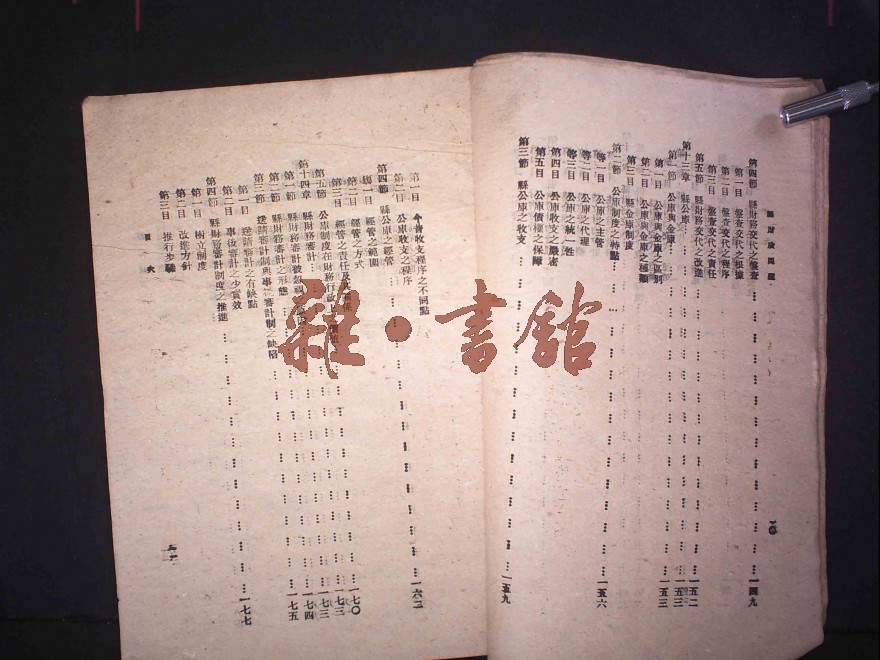 縣財政問題
第四節 縣財務交代之盤查……一四九
第一目 盤查交代之根據
第二目 盤查交代之程序
第三目 盤查交代之責任
第五節 縣財務交代之改進……一五二
第十三章 縣公庫……一五三
第一節 公庫與金庫……一五三
第一目 公庫與金庫之區別
第二目 公庫與金庫之種類
第三目 縣金庫制度
第二節 公庫制度之特點……一五六
第一目 公庫之主管
第二目 公庫之代理
第三目 公庫之統一性
第四目 公庫收支之嚴密
第五目 公庫債權之保障
第三節 縣公庫之收支……一五九
第一目 收支程序之不同點
第二目 公庫收支之程序
第四節 縣公庫之經管……一六二
第一目 經管之範圍
第二目 經管之方式
第三目 經管之責任及
第五節 公庫制度在財務行政……一七〇
第十四章 縣財務審計……一七三
第一節 縣財務審計之形態……一七三
第二節 縣財務審計被忽視……一七四
第三節 送請審計制與事審計制之缺陷……一七五
第一目 送請審計之有缺點
第二目 事後審計之少實效
第四節 縣財務審計制度之推進……一七七
第一目 樹立制度
第二目 改進方針
第三目 推行步驟
目 次
雜·書館